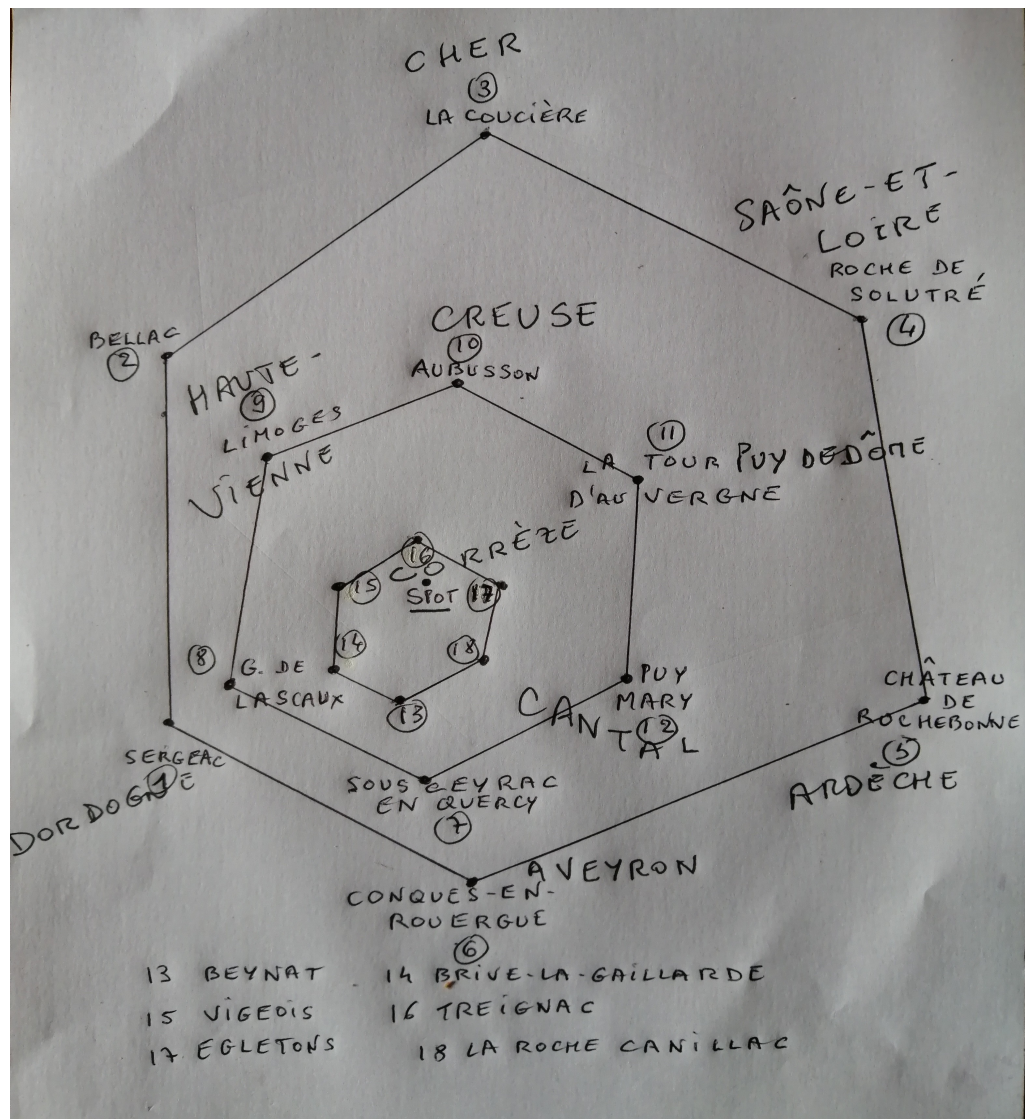 CHER
3
LA COUCIÈRE
SAÔNE-ET-
LOIRE
ROCHE DE
SOLUTRÉ
4
BELLAC
2
CREUSE
10
AUBUSSON
HAUTE-
9
LIMOGES
VIENNE
11
LA TOUR PUY DE DÔME
D'AUVERGNE
16
CORRÈZE
15
SPOT
17
14
18
13
8
G. DE
LASCAUX
PUY
MARY
12
CANTAL
CHÂTEAU
DE
ROCHEBONNE
5
ARDÈCHE
SERGEAC
1
DORDOGNE
SOUSCEYRAC
EN QUERCY
7
AVEYRON
CONQUES-EN-
ROUERGUE
6
13 BEYNAT 14 BRIVE-LA-GAILLARDE
15 VIGEOIS 16 TREIGNAC
17 EGLETONS 18 LA ROCHE CANILLAC